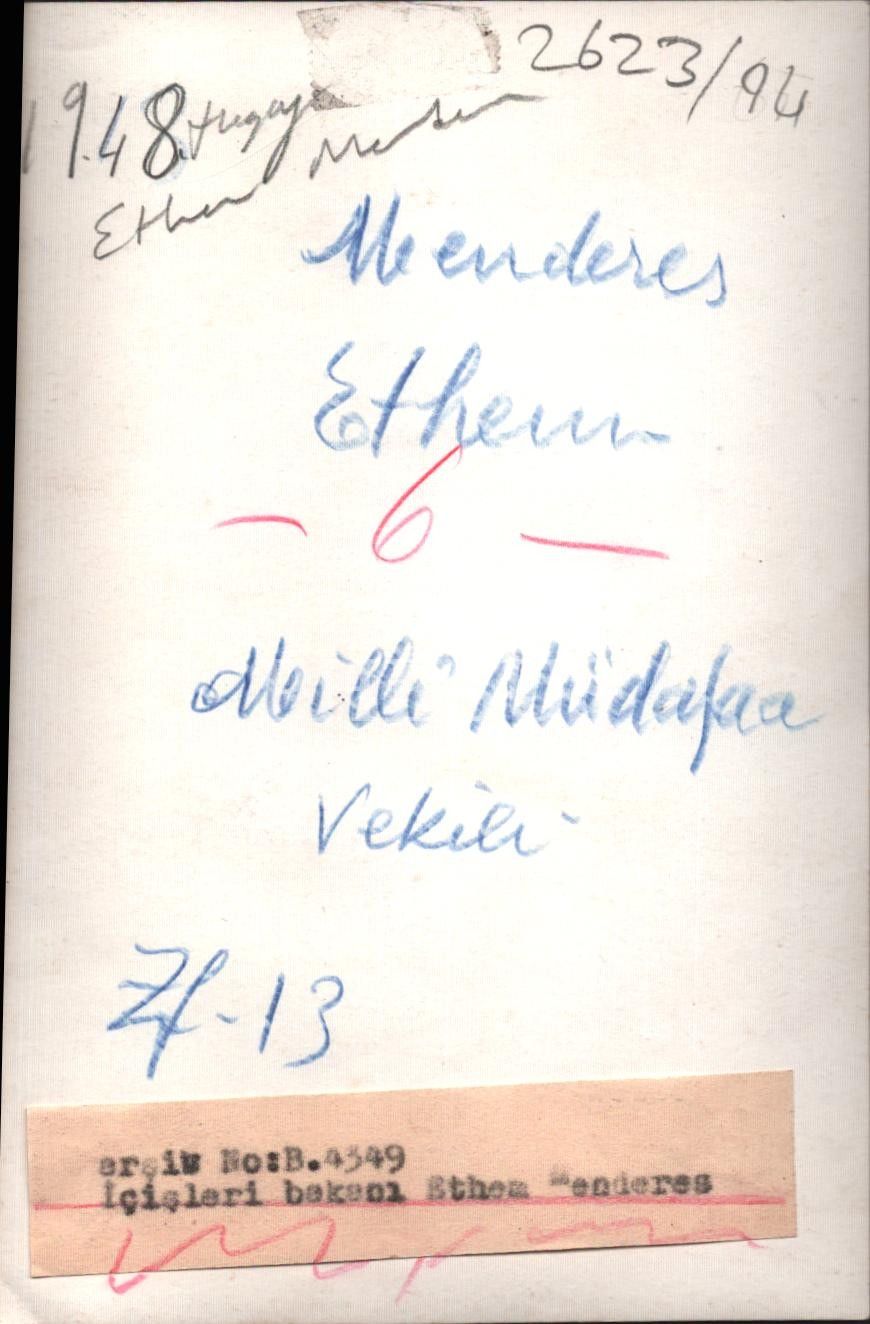 2623/94
1948
Ethem
Menderes
Ethem
- 6 -
Milli Müdafaa
Vekili
Zf-13
arşiv No:B.4349
İçişleri bakanı Ethem Menderes